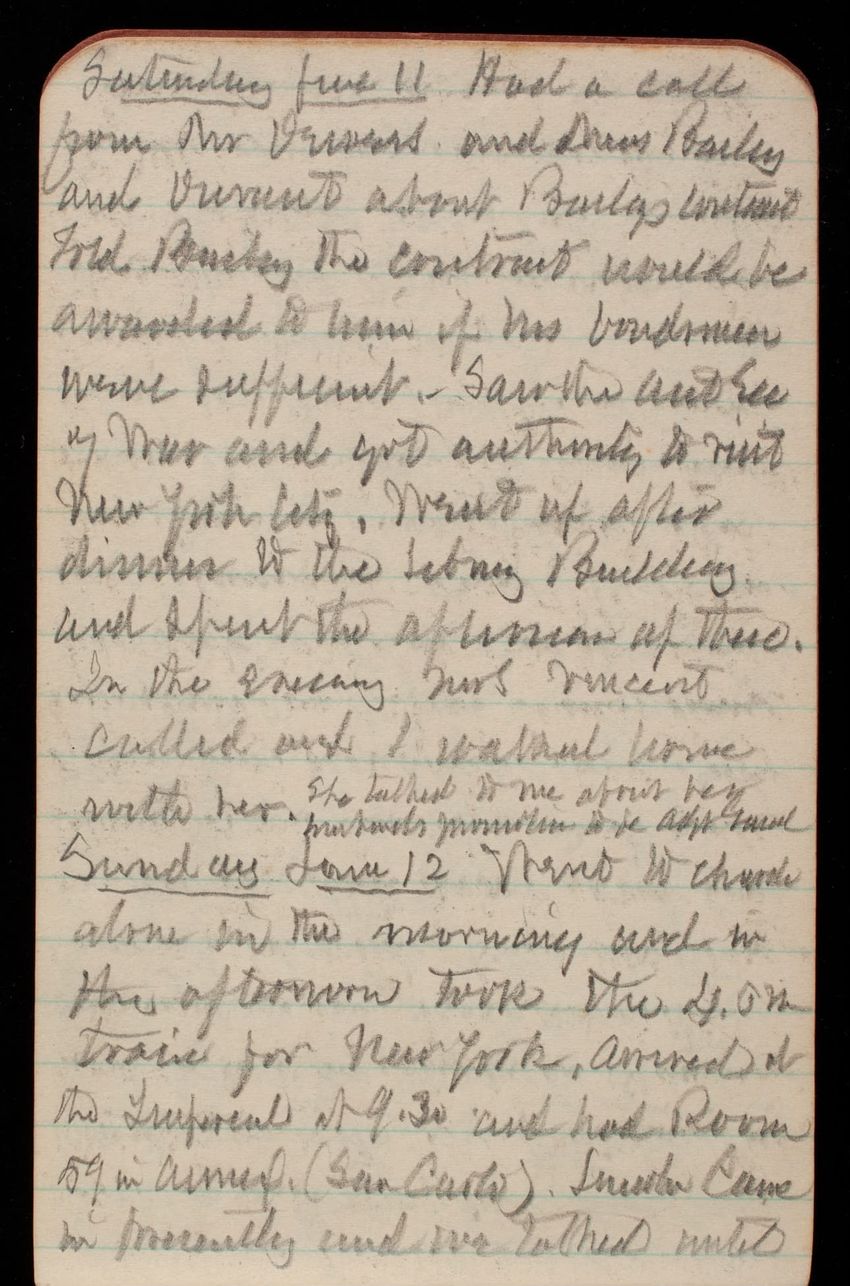 Saturday June 11 Had a call
from Mr and Bailey
and Vincent about Baileys contract
Told Bailey the contract would be
awarded to him if his bondsmen
were sufficient. Saw the act Sec
of War and got authority to visit
New York City. Went up after
dinner to the Library Building
and spent the afternoon up there.
In the evening Mrs Vincent
called and I walked home
with her. She talked to me about her
husbands promotion to be Adjt Genl
Sunday June 12 Went to church
alone in the morning and in
the afternoon took the 4.
train for New York, arrived at
the Imperial at 9.30 and had Room
59 in annex. (San Carlo). Lincoln came
in presently and we talked until